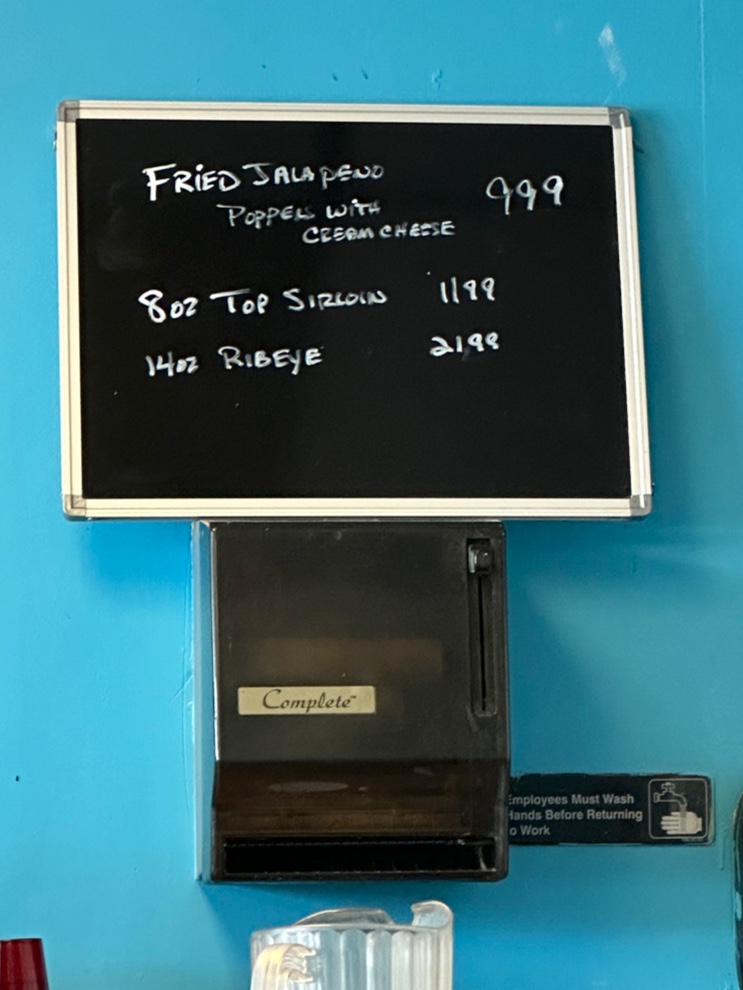 FRIED JALAPENO 999
POPPERS WITH
CREAM CHEESE
8oz TOP SIRLOIN 1199
14oz RIBEYE 2199
Complete™
Employees Must Wash
Hands Before Returning
o Work